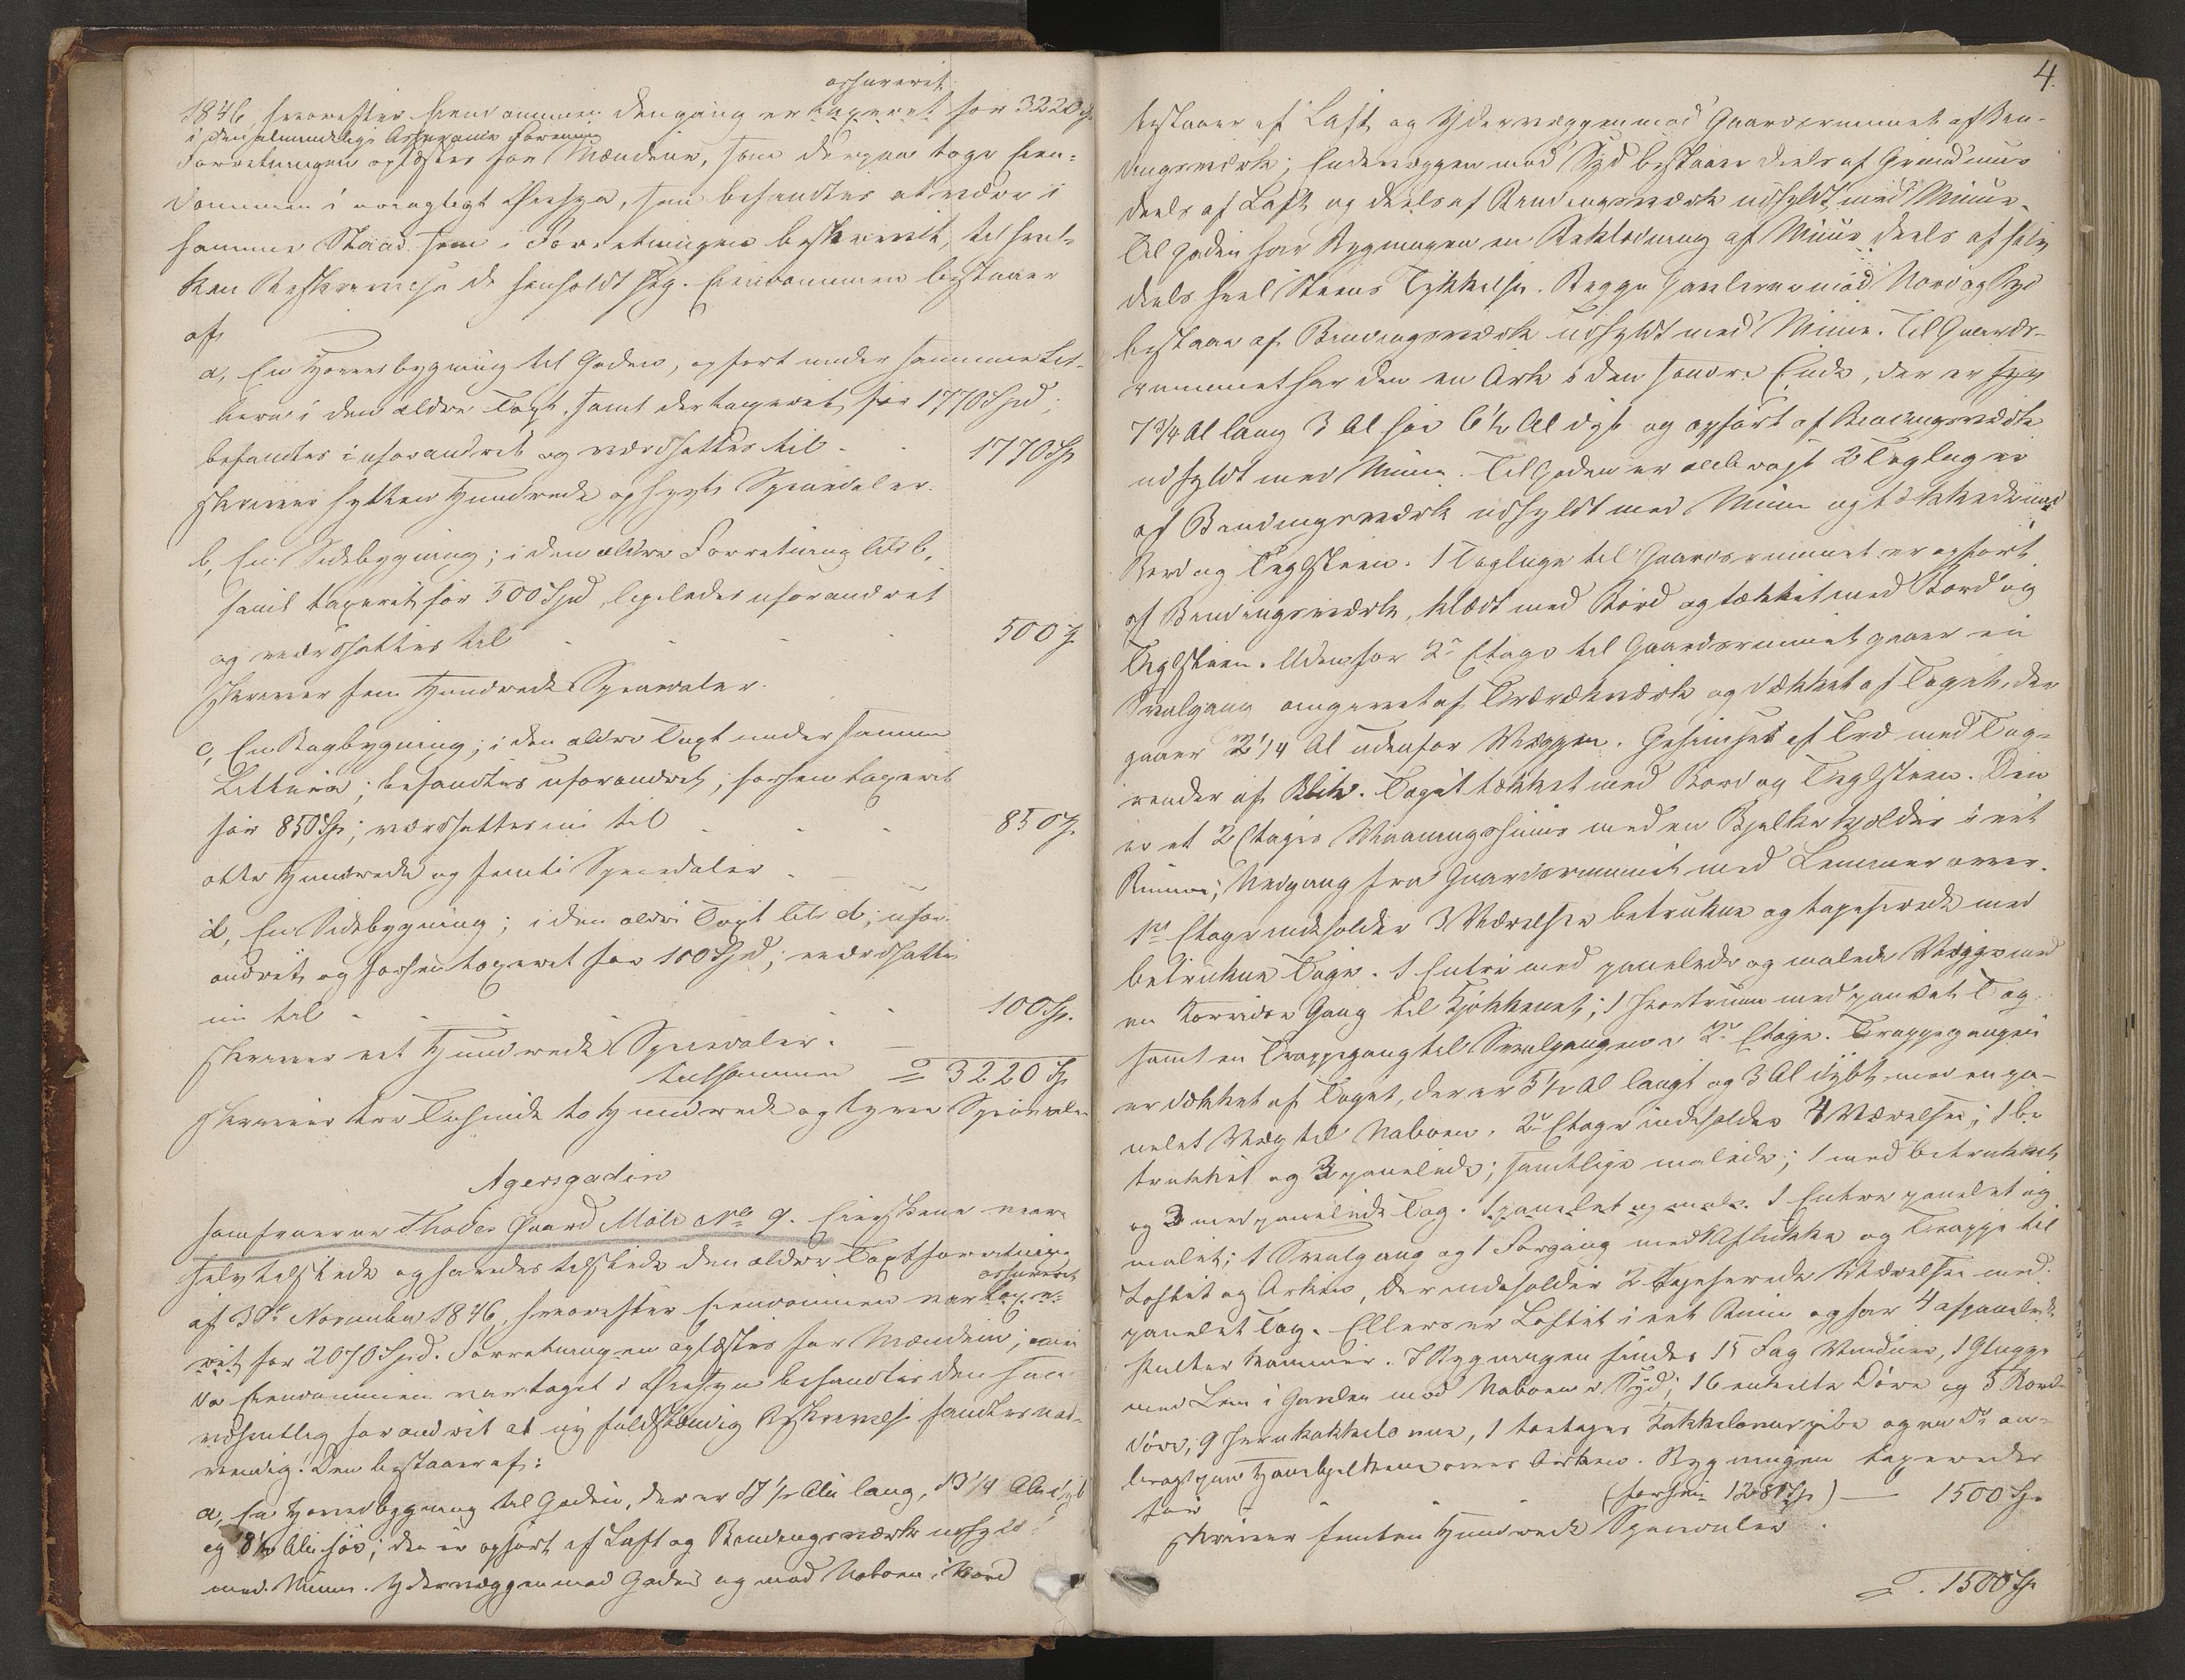 assureret
1846, hvorefter Eiendommen dengang er taxeret for 3220 Sp
i den almindelige Assurance Forening
Forretningen oplæstes for Mændene, som derpaa toge Eien-
dommen i nøiagtigt Øiesyn, som befandtes at være i
samme Stand som i Forretningen beskrevet, til hvil-
ken Beskrivelse de henholdt sig. Eiendommen bestaaer
af
a, En Hovedbygning til Gaden, opført under samme Lit-
tera i den ældre Taxt, samt der taxeret for 1770 Spd;
befandtes uforandret og værdsattes til - - 1770 Sp
skriver sytten Hundrede og sytti Speciedaler.
b, En Sidebygning; i den ældre Forretning litr b,
samt taxeret for 500 Spd, ligeledes uforandret
og værdsattes til - - - - 500 Sp
skriver fem Hundrede Speciedaler.
c, En Bagbygning; i den ældre Taxt under samme
Littera; befandtes uforandret, forhen taxeret
for 850 Sp; værdsattes nu til - - - 850 Sp.
otte Hundrede og femti Speciedaler. -
d, En Sidebygning; i den ældre Taxt litr d; ufor-
andret og forhen taxeret for 100 Spd; værdsattes
nu til - - - - - 100 Sp.
skriver eet Hundrede Speciedaler. -
tilsammen = 3220 Sp
skriver tre Tusinde to Hundrede og tyve Speciedaler
Agersgaden
Jomfruerne Thodes Gaard Mtle No 9. Eierskene var
selv tilstede og havdes tilstede den ældre Taxtforretning
assureret
af 3de November 1846, hvorefter Eiendommen var taxe-
ret for 2070 Spd. Forretningen oplæstes for Mændene; men
da Eiendommen var taget i Øiesyn befandtes den saa
væsentlig forandret at ny fuldstændig Beskrivelse fandtes nød-
vendig. Den bestaaer af:
a, En Hovedbygning til Gaden, der er 17½ Alen lang, 13¼ Alen dyb
og 8½ Alen høi; den er opført af Laft og Bindingsværk udfyldt
med Muur. Ydervæggen mod Gaden og mod Naboen i Nord
4.
bestaaer af Laft og Ydervæggen mod Gaardsrummet af Bin-
dingsværk; Endevæggen mod Syd bestaaer deels af Grundmuur
deels af Laft og deels af Bindingsværk udfyldt med Muur.
Til Gaden har Bygningen en Beklædning af Muur deels af halv
deels heel Steens Tykkelse. Begge Gavlerne mod Nord og Syd
bestaaer af Bindingsværk udfyldt med Muur. Til Gaards-
rummet har den en Ark i den søndre Ende, der er
7¾ Al lang 3 Al høi 6½ Al dyb og opført af Bindingsværk
udfyldt med Muur. Til Gaden er anbragt 2 Tagluger
af Bindingsværk udfyldt med Muur og tækkede med
Bord og Teglsteen. 1 Tagluge til Gaardsrummet er opført
af Bindingsværk, klædt med Bord og tækket med Bord og
Teglsteen. Udenfor 2den Etage til Gaardsrummet gaaer en
Svalgang omgivet af Trærækværk og dækket af Taget, der
gaaer 2¼ Al udenfor Væggen. Gesimset af Træ med Tag-
render af Blik. Taget tækket med Bord og Teglsteen. Den
er et 2 Etages Vaaningshuus med en Bjelkekjelder i eet
Rum, Nedgang fra Gaardsrummet med Lemmer over.
1ste Etage indeholder 3 Værelser betrukne og tapeserede med
betrukne Tage. 1 Entre med panelede og malede Vægge med
en Korridor Gang til Kjøkkenet; 1 Hvortrum med panelet Tag
samt en Trappegang til Svalgangen i 2den Etage. Trappegangen
er dækket af Taget, der er 5½ Al langt og 3 Al dybt med en pa-
nelet Væg til Naboen. 2den Etage indeholder 4 Værelser; 1 be-
trukket og 3 panelede; samtlige malede; 1 med betrukket
og 3 med panelede Tag. 1 panelet og mal. 1 Entre panelet og
malet; 1 Svalgang og 1 Forgang med Aflukke og Trappe til
Loftet og Arken, der indeholder 2 tapeserede Værelser med
panelet Tag. Ellers er Loftet i eet Rum og har 4 afpanelede
Kulter Kammer. I Bygningen findes 15 Fag Vinduer, 1 Glugge
med Lem i Gavlen mod Naboen i Syd; 16 enkelte Døre og 3 Bord-
døre, 9 Jernkakkelovne, 1 toetages Kakkelovnspibe og en do an-
bragt paa Hanebjelkene over Arken. Bygningen taxeredes
for - - (forhen 1280 Sp) — 1500 Sp.
skriver femten Hundrede Speciedaler.
= T. 1500 Sp